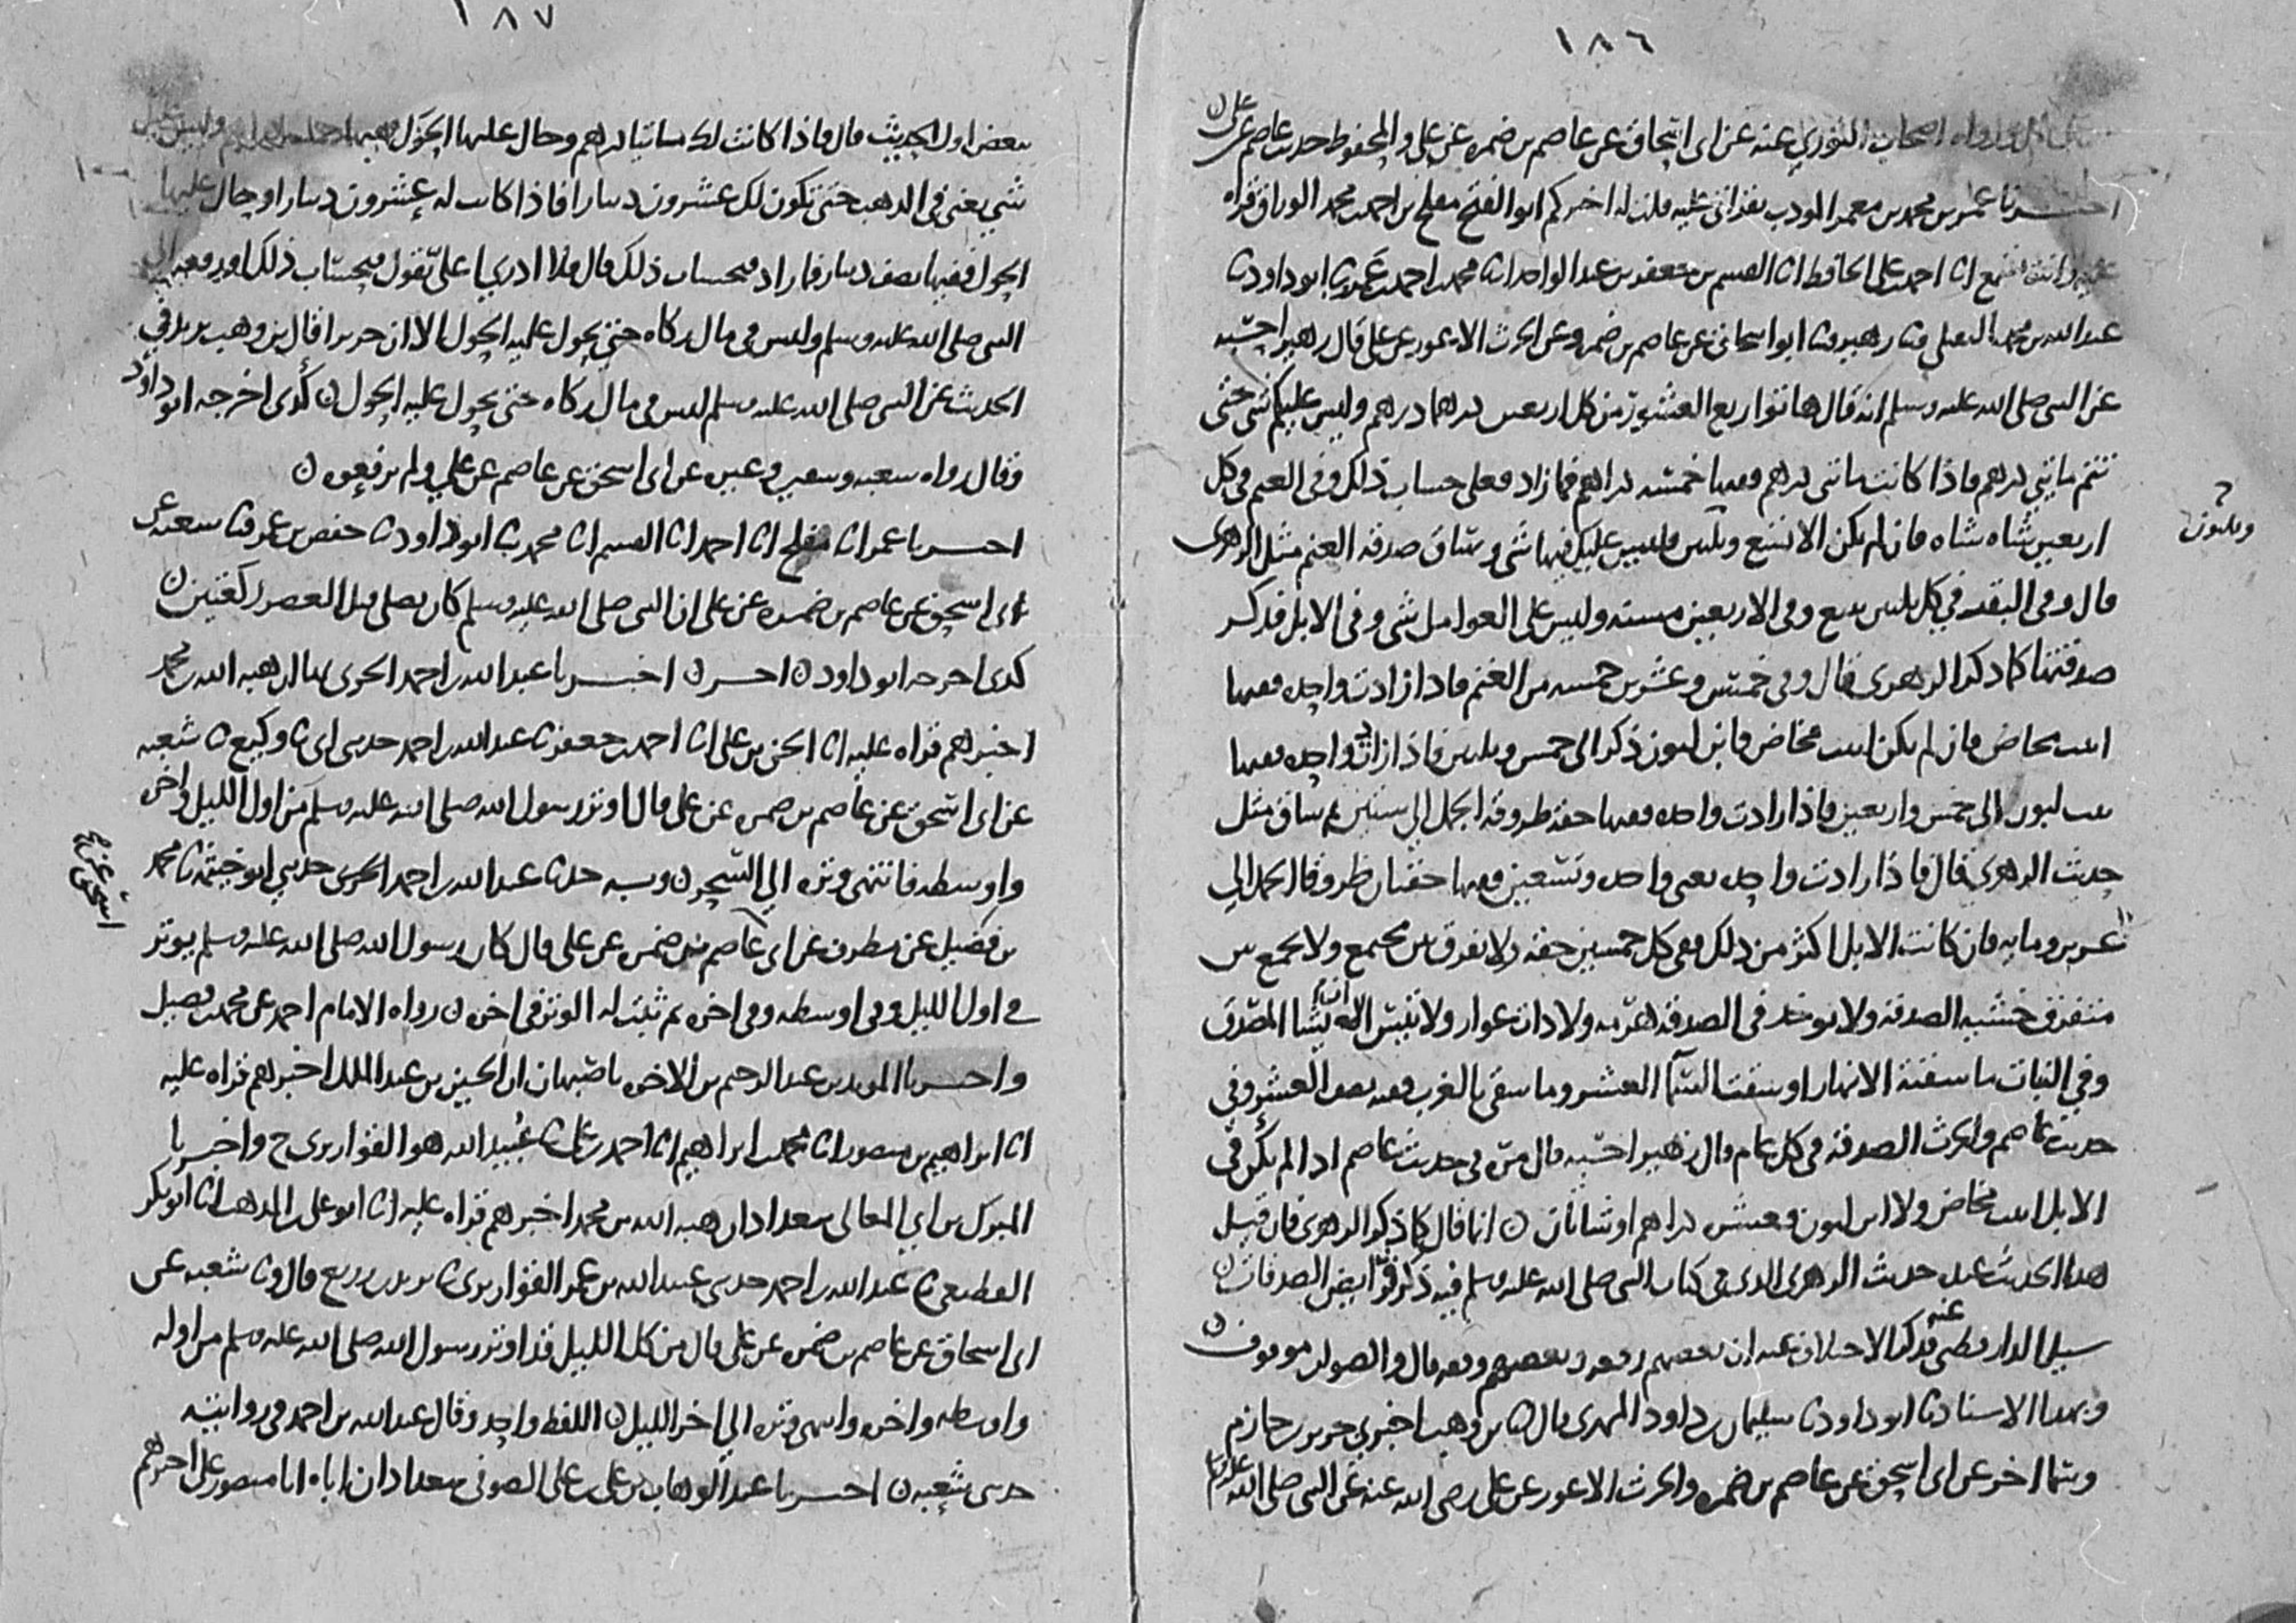 ١٨٦
اصحاب الثوري عنه عن ابي اسحاق عن عاصم بن ضمره عن علي والمحفوظ حديث عاصم عن علي
اخبرنا عمر بن محمد بن معمر المودب بقراتي عليه قلت له اخبركم ابو الفتح مفلح بن احمد بن محمد الوراق قراه
عليه وانت تسمع انا احمد بن علي الحافظ انا القسم بن جعفر بن عبد الواحد انا محمد بن احمد بن عمرو نا ابو داود نا
عبد الله بن محمد النفيلي نا زهير نا ابو اسحاق عن عاصم بن ضمره وعن الحرث الاعور عن علي قال زهير احسبه
عن النبي صلى الله عليه وسلم انه قال هاتوا ربع العشور من كل اربعين درهما درهم وليس عليكم شي حتى
تتم مايتي درهم فاذا كانت مايتي درهم ففيها خمسه دراهم فما زاد فعلى حساب ذلك وفي الغنم في كل
اربعين شاه شاه فان لم يكن الا تسع وثلثين فليس عليك فيها شي وساق صدقه الغنم مثل الزهري
وثلثون
قال وفي البقر في كل ثلثين تبيع وفي الاربعين مسنه وليس على العوامل شي وفي الابل فذكر
صدقتها كما ذكر الزهري قال وفي خمس وعشرين خمسه من الغنم فاذا زادت واحده ففيها
ابنت مخاض فان لم يكن ابنت مخاض فابن لبون ذكر الى خمس وثلثين فاذا زادت واحده ففيها
بنت لبون الى خمس واربعين فاذا زادت واحده ففيها حقه طروقه الجمل الى ستين ثم ساق مثل
حديث الزهري قال فاذا زادت واحده يعني واحده وتسعين ففيها حقتان طروقتا الجمل الى
عشرين ومايه فان كانت الابل اكثر من ذلك ففي كل خمسين حقه ولا يفرق بين مجتمع ولا يجمع بين
متفرق خشيه الصدقه ولا يوخذ في الصدقه هرمه ولا ذات عوار ولا تيس الا ان يشا المصدق
وفي النبات ما سقته الانهار او سقت السما العشر وما سقي بالغرب ففيه نصف العشر وفي
حديث عاصم والحرث الصدقه في كل عام قال زهير احسبه قال مره في حديث عاصم اذا لم يكن في
الابل ابنت مخاض ولا ابن لبون فعشره دراهم او شاتان ن انما قال كما ذكر الزهري فان قيل
هذا الحديث عند حديث الزهري الذي في كتاب النبي صلى الله عليه وسلم فيه ذكر فرايض الصدقات ن
سيل الدارقطني عنه فذكر الاختلاف فيه ان بعضهم رفعه وبعضهم وقفه قال والصواب موقوف ن
وبهذا الاسناد نا ابو داود نا سليمان بن داود المهري قال نا بن وهب اخبرني جرير بن حازم
وسما اخر عن ابي اسحق عن عاصم بن ضمره والحرث الاعور عن علي رضي الله عنه عن النبي صلى الله عليه وسلم
١٨٧
ببعض اول الحديث قال فاذا كانت لك مايتا درهم وحال عليها الحول ففيها خمسه دراهم وليس عليك
شي يعني في الذهب حتى تكون لك عشرون دينارا فاذا كانت له عشرون دينارا وحال عليها
الحول ففيها نصف دينار فما زاد فبحساب ذلك قال فلا ادري اعلي يقول فبحساب ذلك او رفعه الى
النبي صلى الله عليه وسلم وليس في مال زكاه حتى يحول عليه الحول الا ان جريرا قال بن وهب يزيد في
الحديث عن النبي صلى الله عليه وسلم ليس في مال زكاه حتى يحول عليه الحول ن كذى اخرجه ابو داود
وقال رواه شعبه وسفين وغيره عن ابي اسحق عن عاصم عن علي ولم يرفعوه ن
اخبرنا عمر انا مفلح انا احمد انا القسم انا محمد نا ابو داود نا حفص بن عمر نا شعبه عن
ابي اسحق عن عاصم بن ضمره عن علي ان النبي صلى الله عليه وسلم كان يصلي قبل العصر ركعتين ن
كذى اخرجه ابو داود ن اخر ن اخبرنا عبد الله بن احمد الحربي ان هبه الله بن محمد
اخبرهم قراه عليه انا الحسن بن علي انا احمد بن جعفر نا عبد الله بن احمد حدثني ابي نا وكيع نا شعبه
عن ابي اسحق عن عاصم بن ضمره عن علي قال اوتر رسول الله صلى الله عليه وسلم من اول الليل واخره
واوسطه فانتهى وتره الى السحر ن وبه حدثنا عبد الله بن احمد الحربي حدثني ابو خيثمه نا محمد
بن فضيل عن مطرف عن ابي عاصم بن ضمره عن علي قال كان رسول الله صلى الله عليه وسلم يوتر
اسحق عن
في اول الليل وفي اوسطه وفي اخره ثم ثبت له الوتر في اخره ن رواه الامام احمد عن محمد بن فضيل
واخبرنا المويد بن عبد الرحيم بن الاخوه باصبهان ان الحسين بن عبد الملك اخبرهم قراه عليه
انا ابراهيم بن منصور انا محمد بن ابراهيم انا احمد بن علي نا عبيد الله هو القواريري ح واخبرنا
المبرك بن ابي المعالي ببغداد ان هبه الله بن محمد اخبرهم قراه عليه انا ابو علي بن المذهب انا ابو بكر
القطيعي نا عبد الله بن احمد حدثني عبيد الله بن عمر القواريري نا يزيد بن زريع قال نا شعبه عن
ابي اسحاق عن عاصم بن ضمره عن علي قال من كل الليل قد اوتر رسول الله صلى الله عليه وسلم من اوله
واوسطه واخره وانتهى وتره الى اخر الليل ن اللفظ واحد وقال عبد الله بن احمد في روايته
حدثني شعبه ن اخبرنا عبد الوهاب بن علي بن علي الصوفي ببغداد ان اباه ابا منصور علي اخبرهم